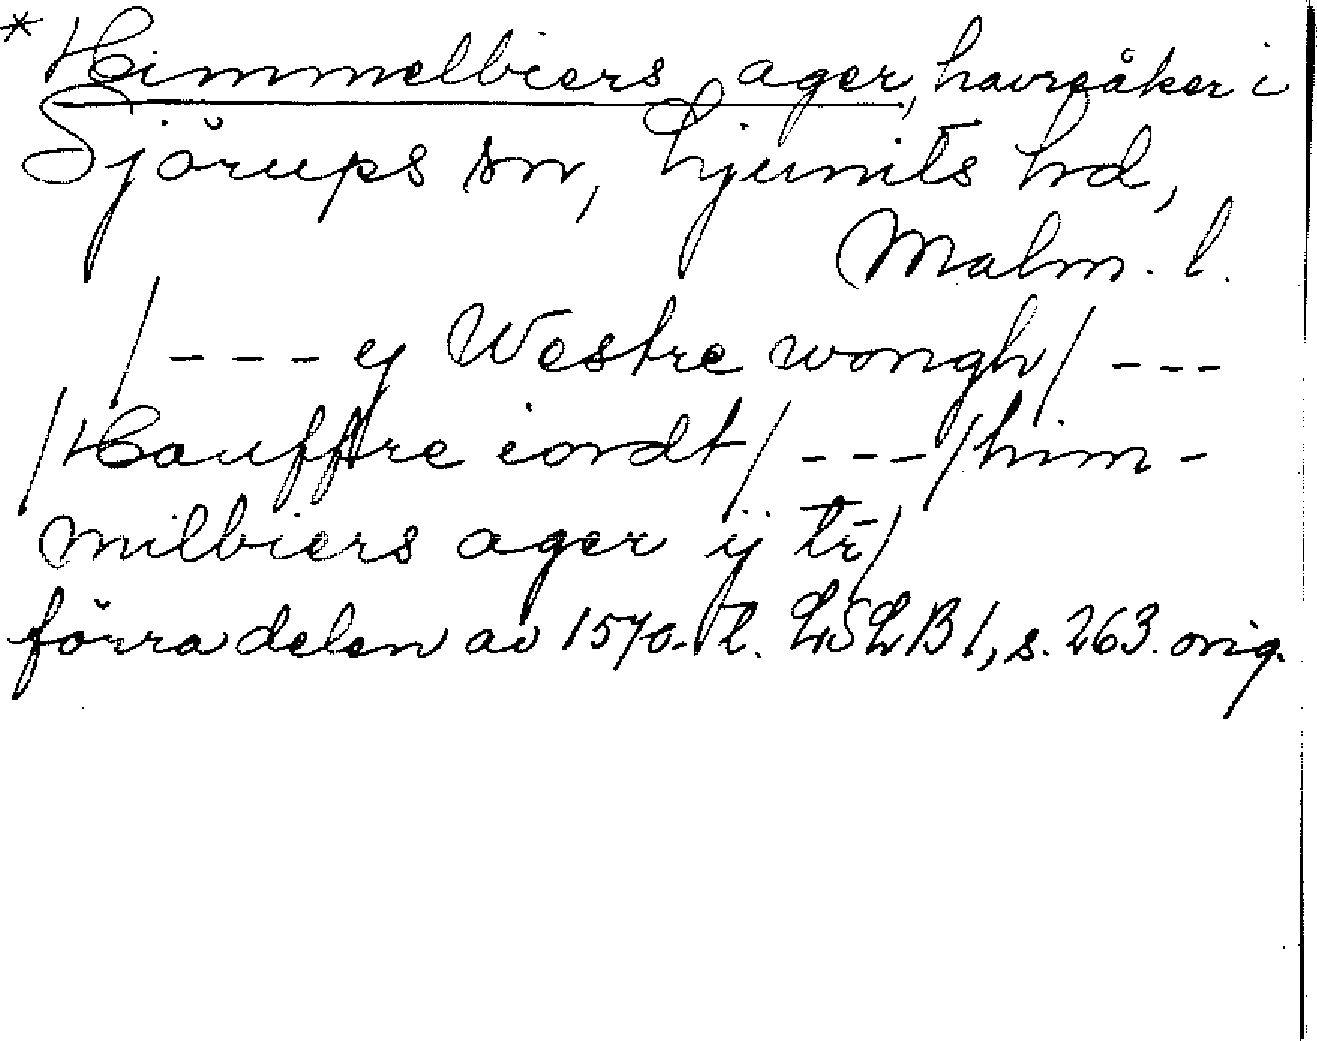 * Himmelbiers ager, havreåker i
Sjörups sn, Ljunits hd,
Malm. l.
/--- y Westre wongh/ ---
/Hauffre iordt/ --- /him-
milbiers ager ij tr̄/
förra delen av 1570-t. LSLB 1, s. 263. orig.